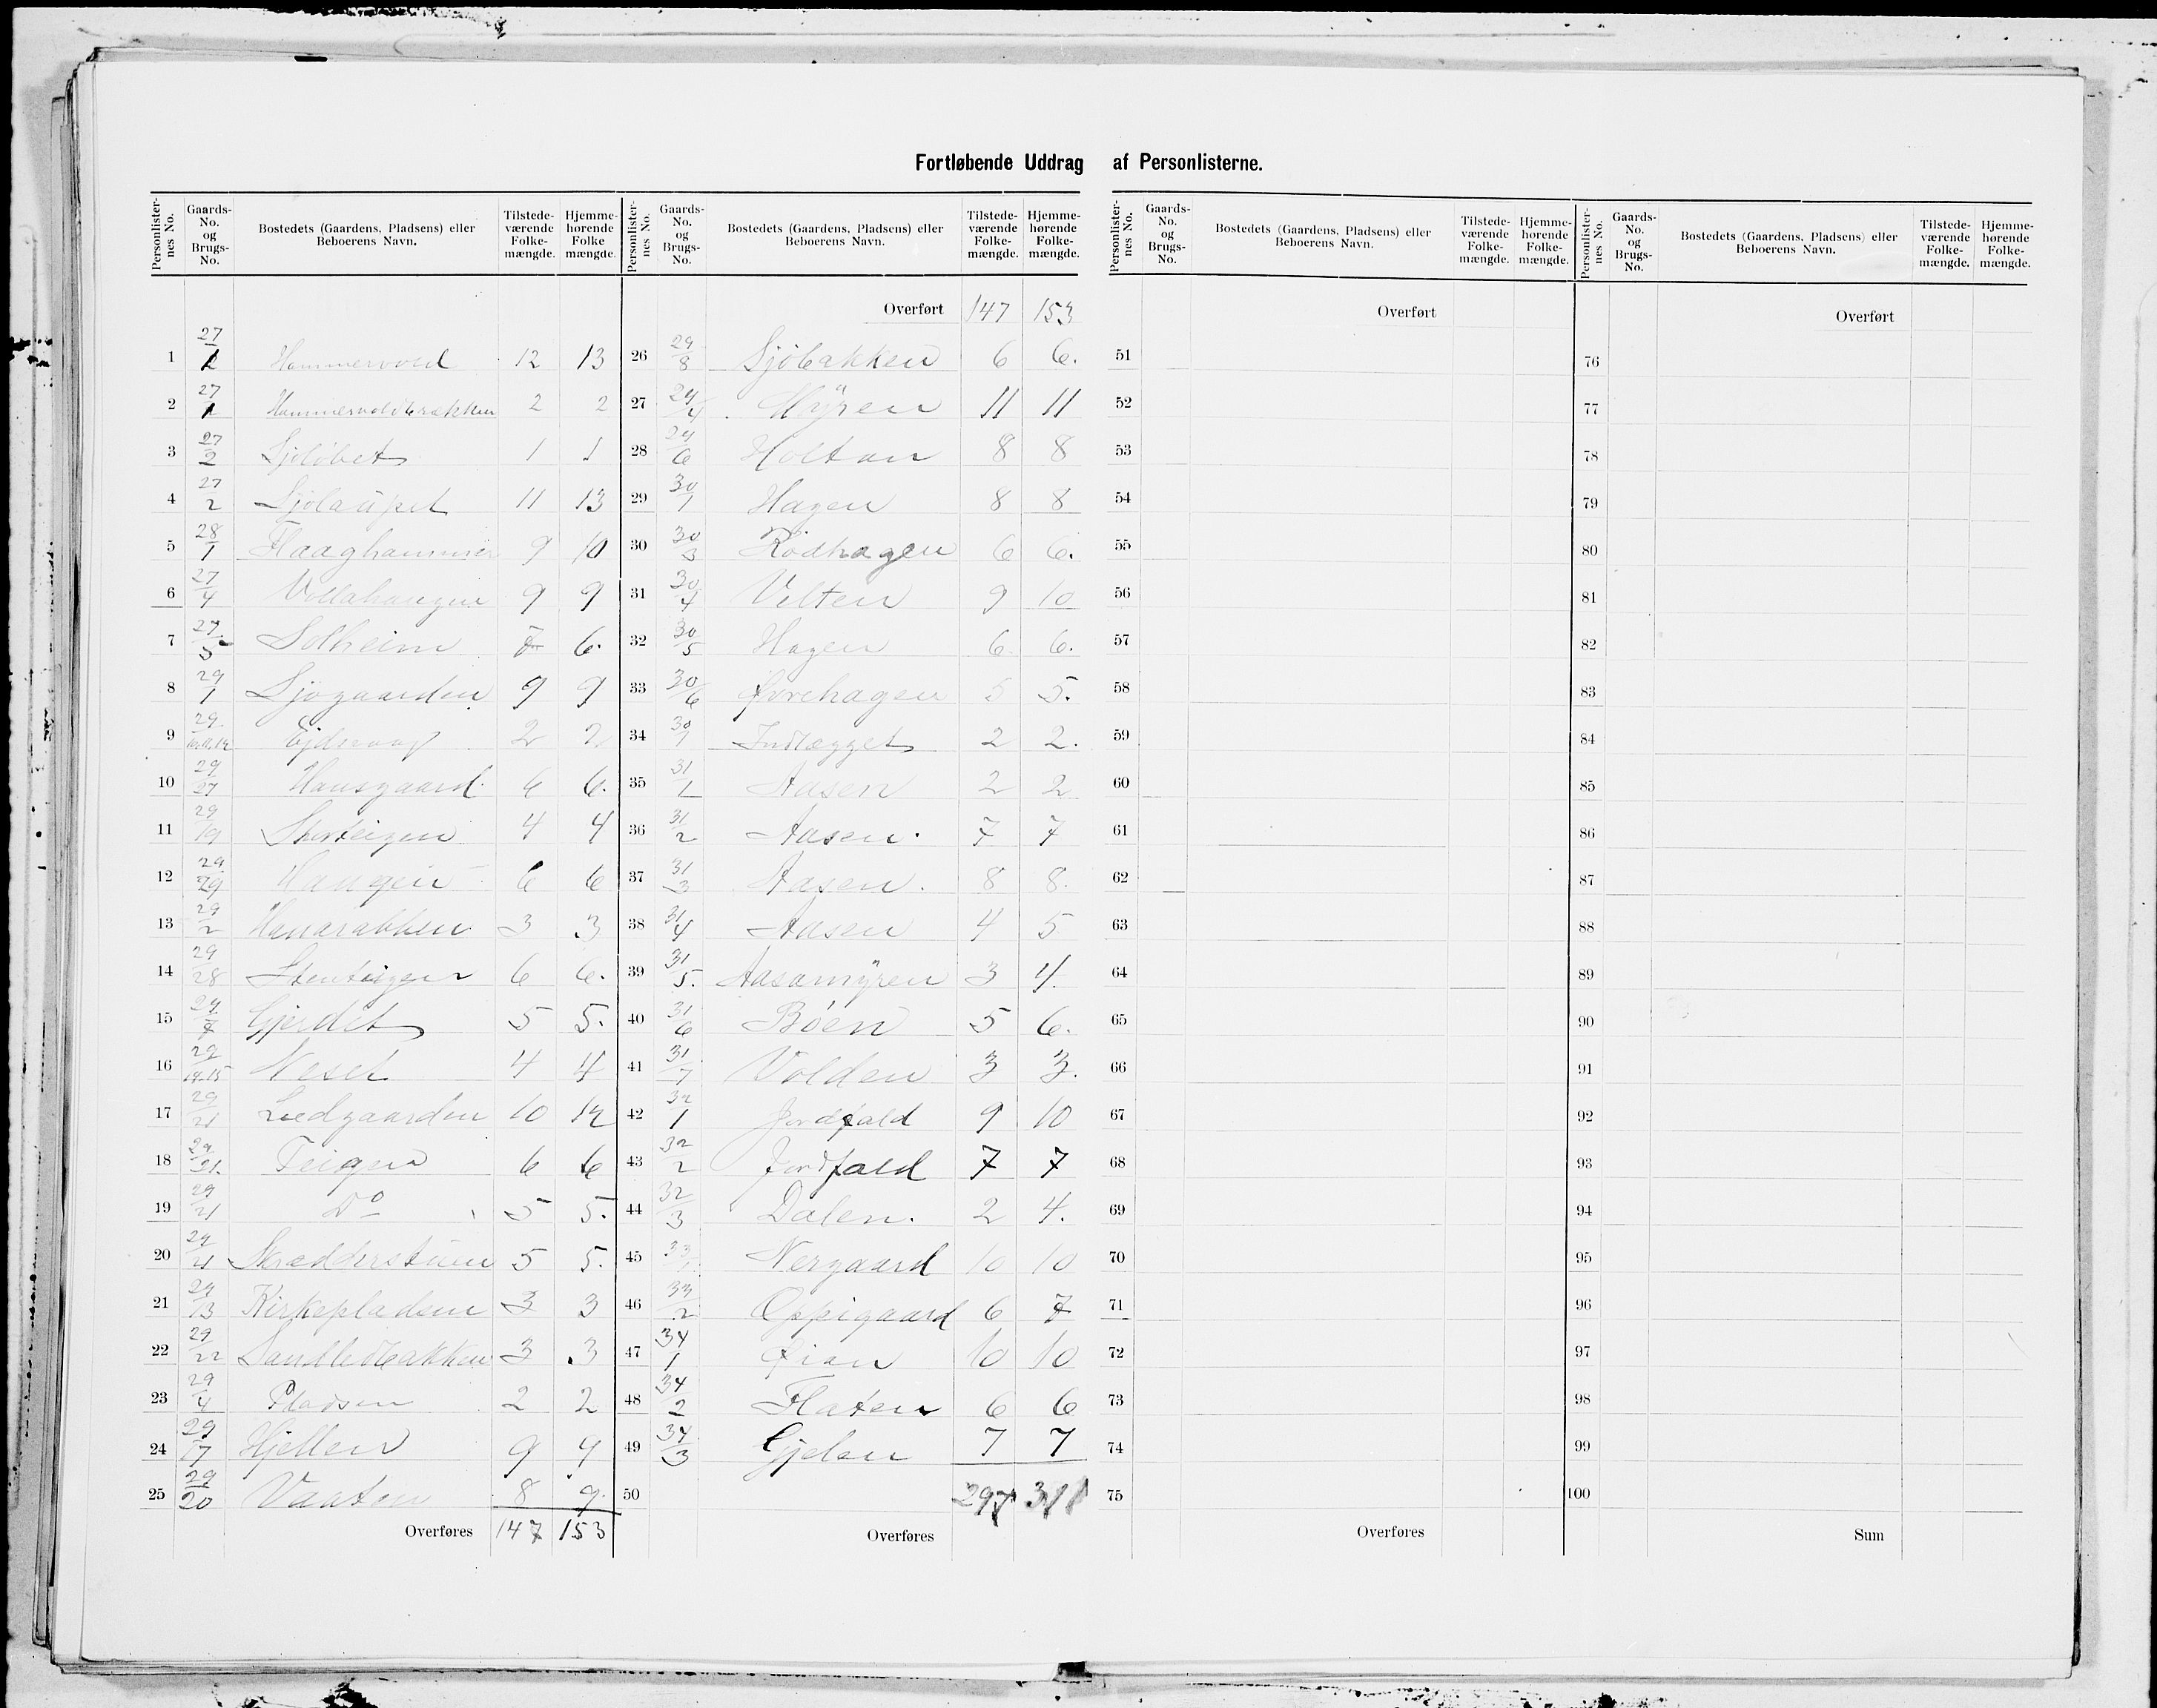 Fortløbende Uddrag af Personlisterne.
Personlisternes No. Gaards-No. og Brugs-No. Bostedets (Gaardens, Pladsens) eller Beboerens Navn. Tilstedeværende Folkemængde. Hjemmehørende Folkemængde.
1 27/1 Hammervold 12 13
2 27/1 Hammervoldbrækken 2 2
3 27/2 Sjøløbet 1 1
4 27/2 Sjølaüpet 11 13
5 28/1 Flaaghammer 9 10
6 27/4 9 9
7 27/5 Solheim 7 6.
8 29/1 Sjøgaarden 9 9
9 29 Ejdsvaag 2 2
10 29/27 Hansgaard 6 6.
11 29/19 Storteigen 4 4
12 29/29 Haugen 6 6
13 29/2 3 3
14 29/28 Stenteigen 6 6.
15 29/7 Gjerdet 5 5.
16 29/14.15 Neset 4 4
17 29/21 Ledgaarden 10 12
18 29/21. Teigen 6 6
19 29/21 Do 5 5.
20 29 Skrædderstuen 5 5.
21 29/13 Kirkepladsen 3 3
22 29/22 3 3
23 29/4 Pladsen 2 2
24 29/17 Hjellen 9 9
25 29/20 Vaaten 8 9.
Overføres 147 153
Overført 147 153
26 29/8 Sjöbakken 6 6.
27 29/4 Myren 11 11
28 29/6 Holtan 8 8
29 30/1 Hagen 8 8
30 30/3 Rödhagen 6 6.
31 30/4 Velten 9 10
32 30/5 Hagen 6 6.
33 30/6 Øvrehagen 5 5.
34 30/7 Indlægget 2 2.
35 31/1 Aasen 2 2
36 31/2 Aasen. 7 7
37 31/3 Aasen. 8 8.
38 31/4 Aasen 4 5
39 31/5. Aasamÿren 3 4.
40 31/6 Böen 5 6.
41 31/7 Volden 3 3.
42 32/1 Jordfald 9 10
43 32/2 Jordfald 7 7
44 32/3 Dalen. 2 4.
45 33/1 Nergaard 10 10
46 33/2 Oppigaard 6 7
47 34/1 Øian 10 10
48 34/2 Flaten 6 6
49 34/3 Gjelen 7 7
50 297 311
Overføres
Personlisternes No. Gaards-No. og Brugs-No. Bostedets (Gaardens, Pladsens) eller Beboerens Navn. Tilstedeværende Folkemængde. Hjemmehørende Folkemængde.
Overført
51
52
53
54
55
56
57
58
59
60
61
62
63
64
65
66
67
68
69
70
71
72
73
74
75
Overføres
Overført
76
77
78
79
80
81
82
83
84
85
86
87
88
89
90
91
92
93
94
95
96
97
98
99
100
Sum